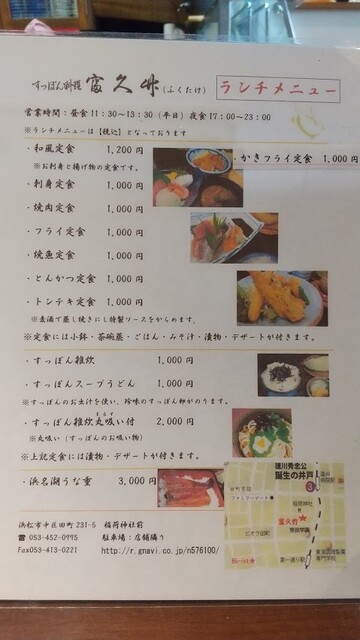 すっぽん料理 富久竹(ふくたけ) ランチメニュー
営業時間：昼食11：30～13：30（平日）夜食17：00～23：00
※ランチメニューは【税込】となっております
・和風定食 1,200円
※お刺身と揚げ物の定食です。
・かきフライ定食 1,000円
・刺身定食 1,000円
・焼肉定食 1,000円
・フライ定食 1,000円
・焼魚定食 1,000円
・とんかつ定食 1,000円
・トンテキ定食 1,000円
※麦酒で蒸し焼きにし特製ソースをからめます。
※定食には小鉢・茶碗蒸・ごはん・みそ汁・漬物・デザートが付きます。
・すっぽん雑炊 1,000円
・すっぽんスープうどん 1,000円
※すっぽんのお出汁を使い、珍味のすっぽん卵がのります。
・すっぽん雑炊丸吸い付 2,000円
※丸吸い（すっぽんのお吸い物）
※上記定食には漬物・デザートが付きます。
・浜名湖うな重 3,000円
浜松市中区田町231-5 稲荷神社前
☎ 053-452-0995 駐車場：店舗隣り
Fax053-413-0221 http://r.gnavi.co.jp/n576100/
徳川秀忠公
誕生の井戸
3
ファミリーマート
稲荷神社
富久竹★
ビオラ田町
第一通り駅